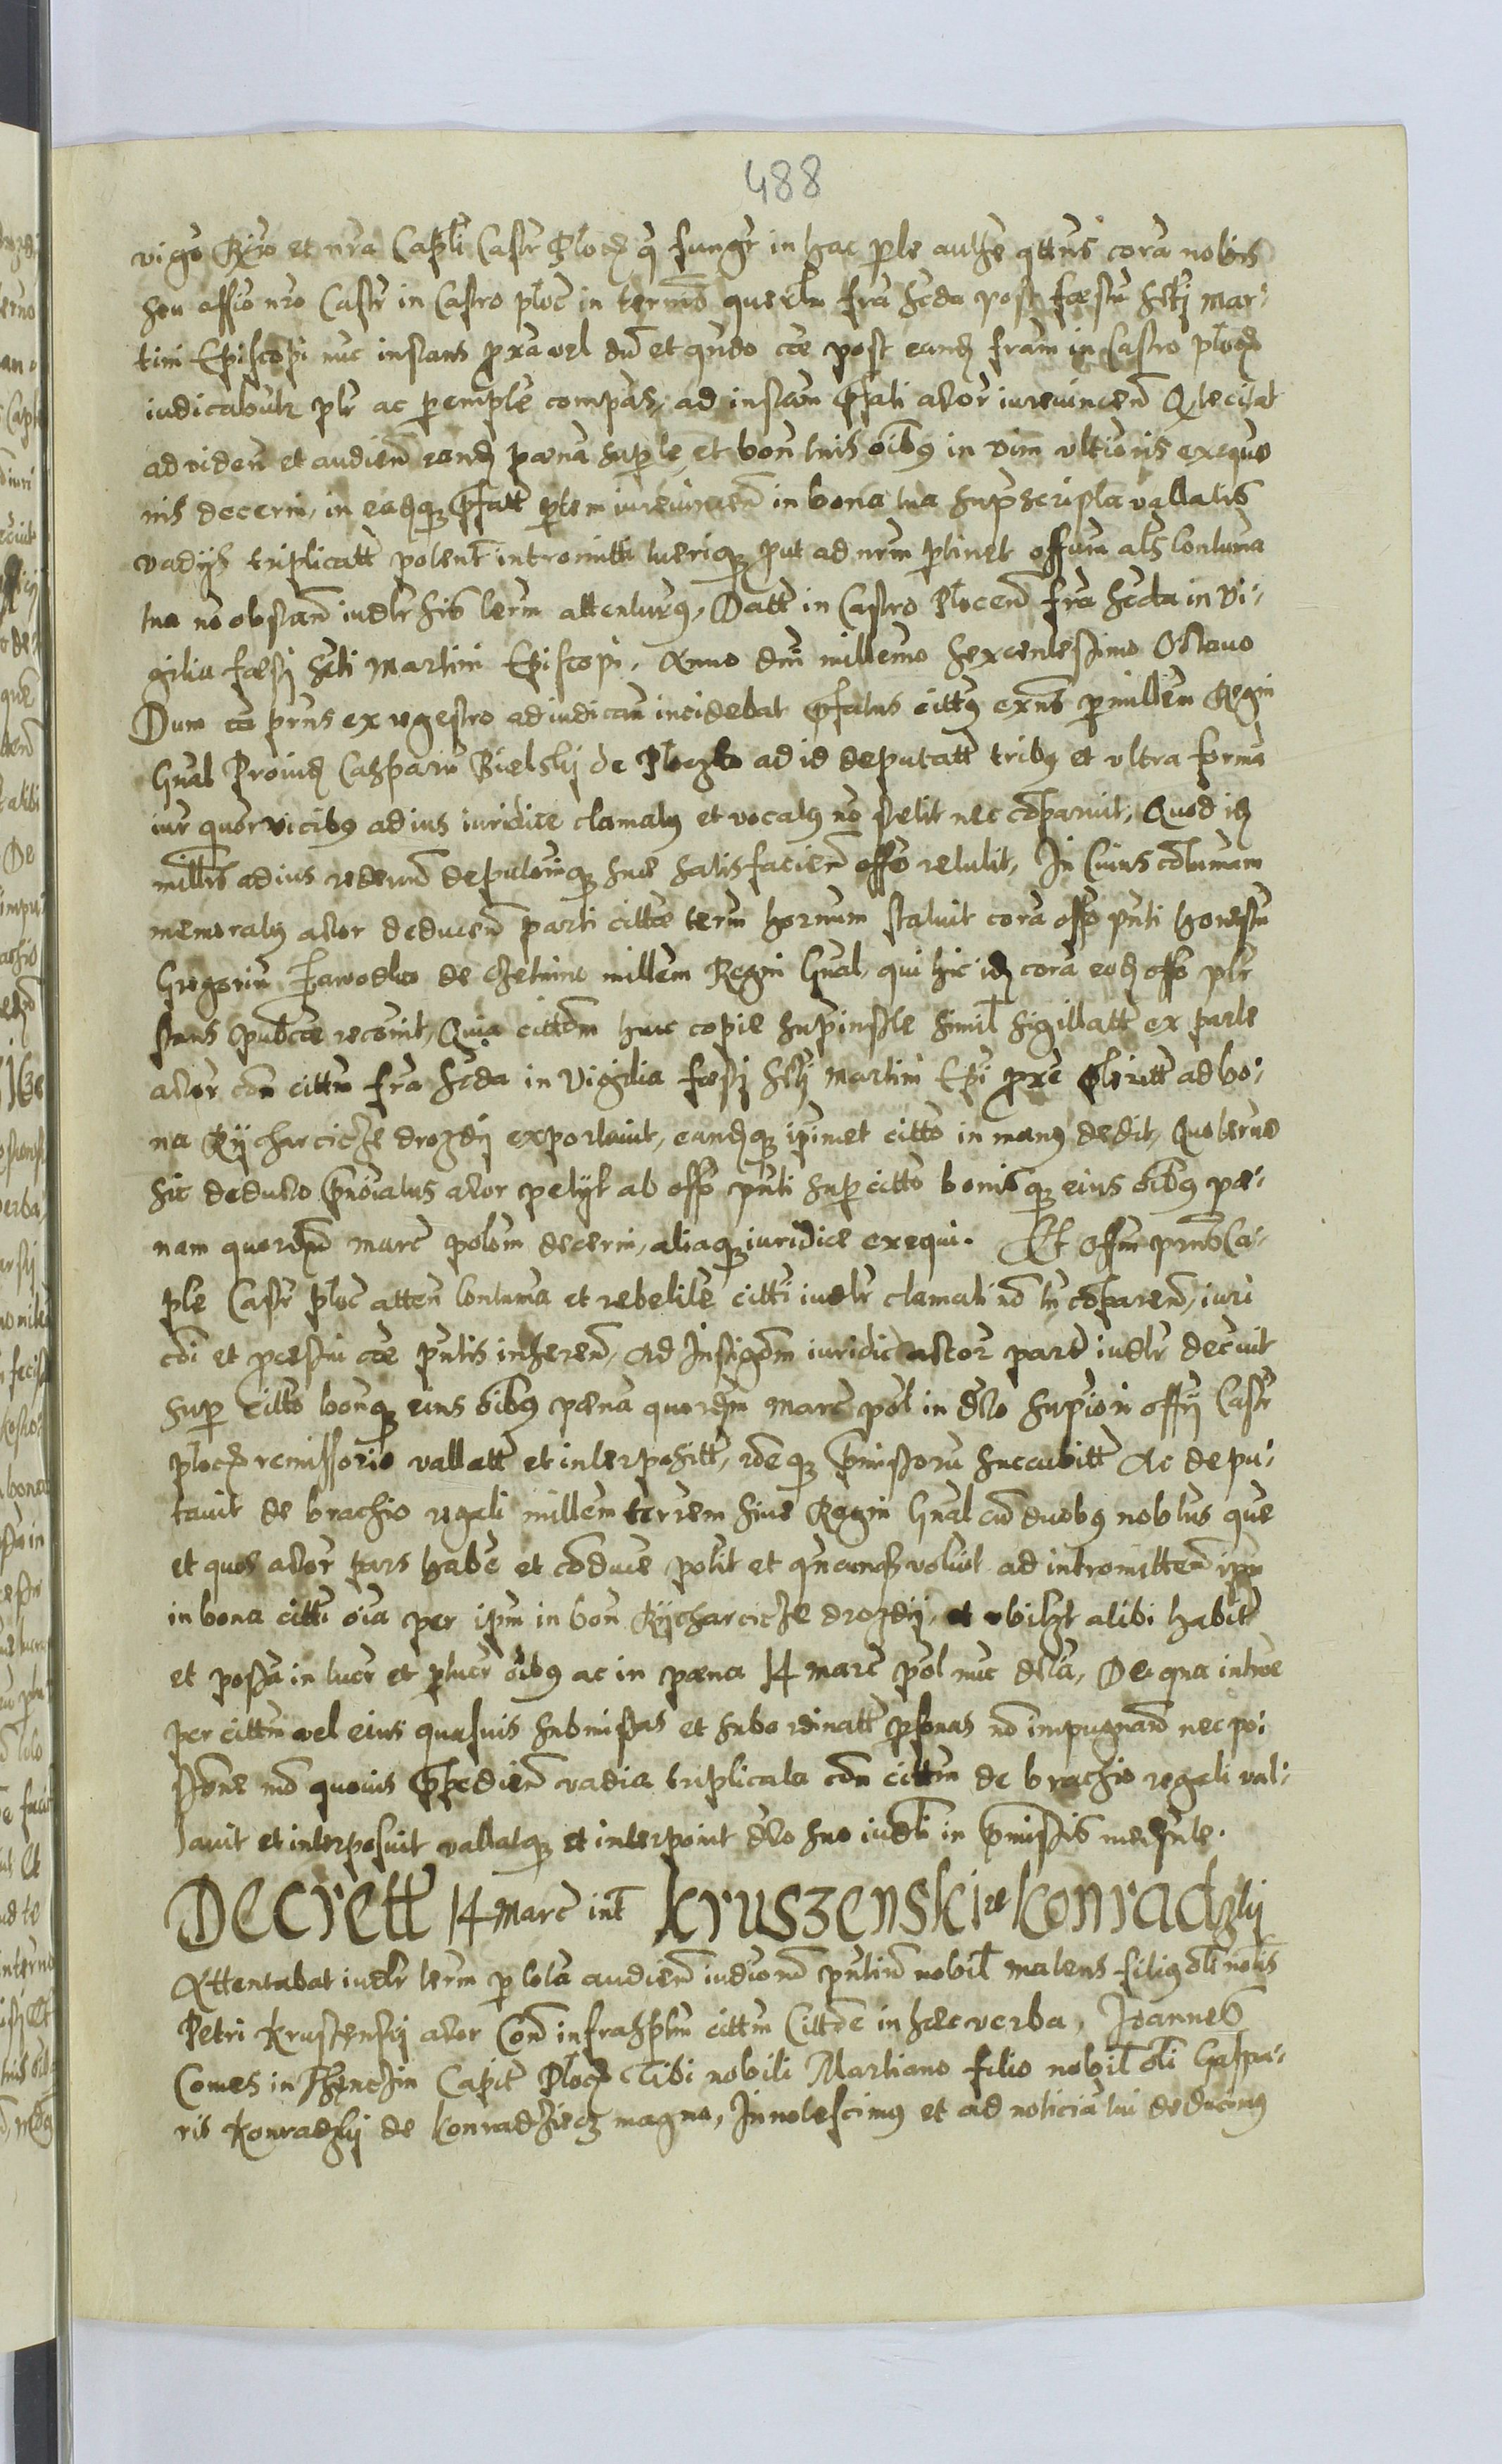 488
vigo Rgio et nra Capli Castr Plocz q fungr in hac ple authe qttns cora nobis
seu offio nro Castr in Castro ploc in termo querlu fra scda post festu scti Mar-
tini Episcopi nuc instans prxa vel du et qndo cce post eandz fram in Castro plocz
iudicabutr plr ac peremple compas, ad instam pfati actor iurevincen Q te citat
ad viden et audien eandz pœna super te et bon tuis oibus in vim ultionis exequo
nis decerni, in eadzq pfatt ptem iurevincen in bona tua suprscripta vallatis
vadys triplicatt potent intromitti tueriq put ad nrm ptinet offium als contuma
tua no obstan iudlr his term attenturus, Datt in Castro Plocen fra scda in Vi-
gilia festi scti Martini Episcopi. Anno dni millemo sexcentesimo Octavo
Dum ca prns ex regestro ad iudican incidebat pfatus cittus exns p millem Regni
Gnal Provid Casparu Bielskij de Ploczko ad id deputatt tribus et ultra forma
iur quor vicibus ad ius iuridice clamatus et vocatus no stetit nec coparuit, Quod idz
mltris ad ius reddend deputoniq sue satisfacien offo retulit, In Cuius cotumam
memoratus actor deducen parti citta term hornum statuit cora offo pnti honestu
Gregoriu Jawodko de Czetnino millem Regni Gnal, qui hic idz cora eodz offo plr
stans publce recouit, Quia cittom huic copie suprinsle simil sigillatt ex parte
actor con cittm fra scda in Vigilia festi scti Martini Epi prxe pterite ad bo-
na Rycharcicze drozdy exportavit, eandzq ipimet citto in manus dedit, Quo termo
sic deducto pnoiatus actor petijt ab offo pnti super citto bonisq eius oibus pœ-
nam quordm marc polom decerni, aliaq iuridice exequi. Et Offm prns Ca-
ple Castr ploc atten contuma et rebelile citti iudlr clamati no tn coparen, iuri
coi et pcessui cce pntis inheren, ad Instigom iuridic actor partis iudlr decrevit
super citto bonq eius oibus pœna quordm marc pol in dco supiori offij Castr
plocz remissorio vallatt et interpositt, rdeq pmissoru succubitt Ac depu-
tavit de brachio regali millem terrem sive Regni Gnal cu duobus noblus que
et quos actor pars habe et coduce potit et qncunq voluit ad intromitten ipm
in bona citti oia per ipm in bon Rycharcicze drozdy, et ubilzt alibi habit
et posta in lucr et plucr oibus ac in pœna 14 marc pol nuc dcta, De qua introe
per cittm vel eius quasuis submissas et subordinatt psonas no impugnand nec po-
ssione mo quovis ppedien vadia triplicata con cittm de brachio regali val-
lavit et interposuit vallatq et interponit dco suo iudli in pmissis mednte.
Decrett 14 marc int Kruszenski et Konradzkij
Attentabat iudlr term p tota audien iudiord pntiu nobil Matens filius oli noblis
Petri Krusczenskij actor Con infrasptm cittm Cittoe in haec verba, Joannes
Comes in Thenczin Capit Plocz Tibi nobili Martiano filio nobil oli Caspa-
ris Konradzkij de Konradziecz magna, Innotescimus et ad noticia tui deducimus